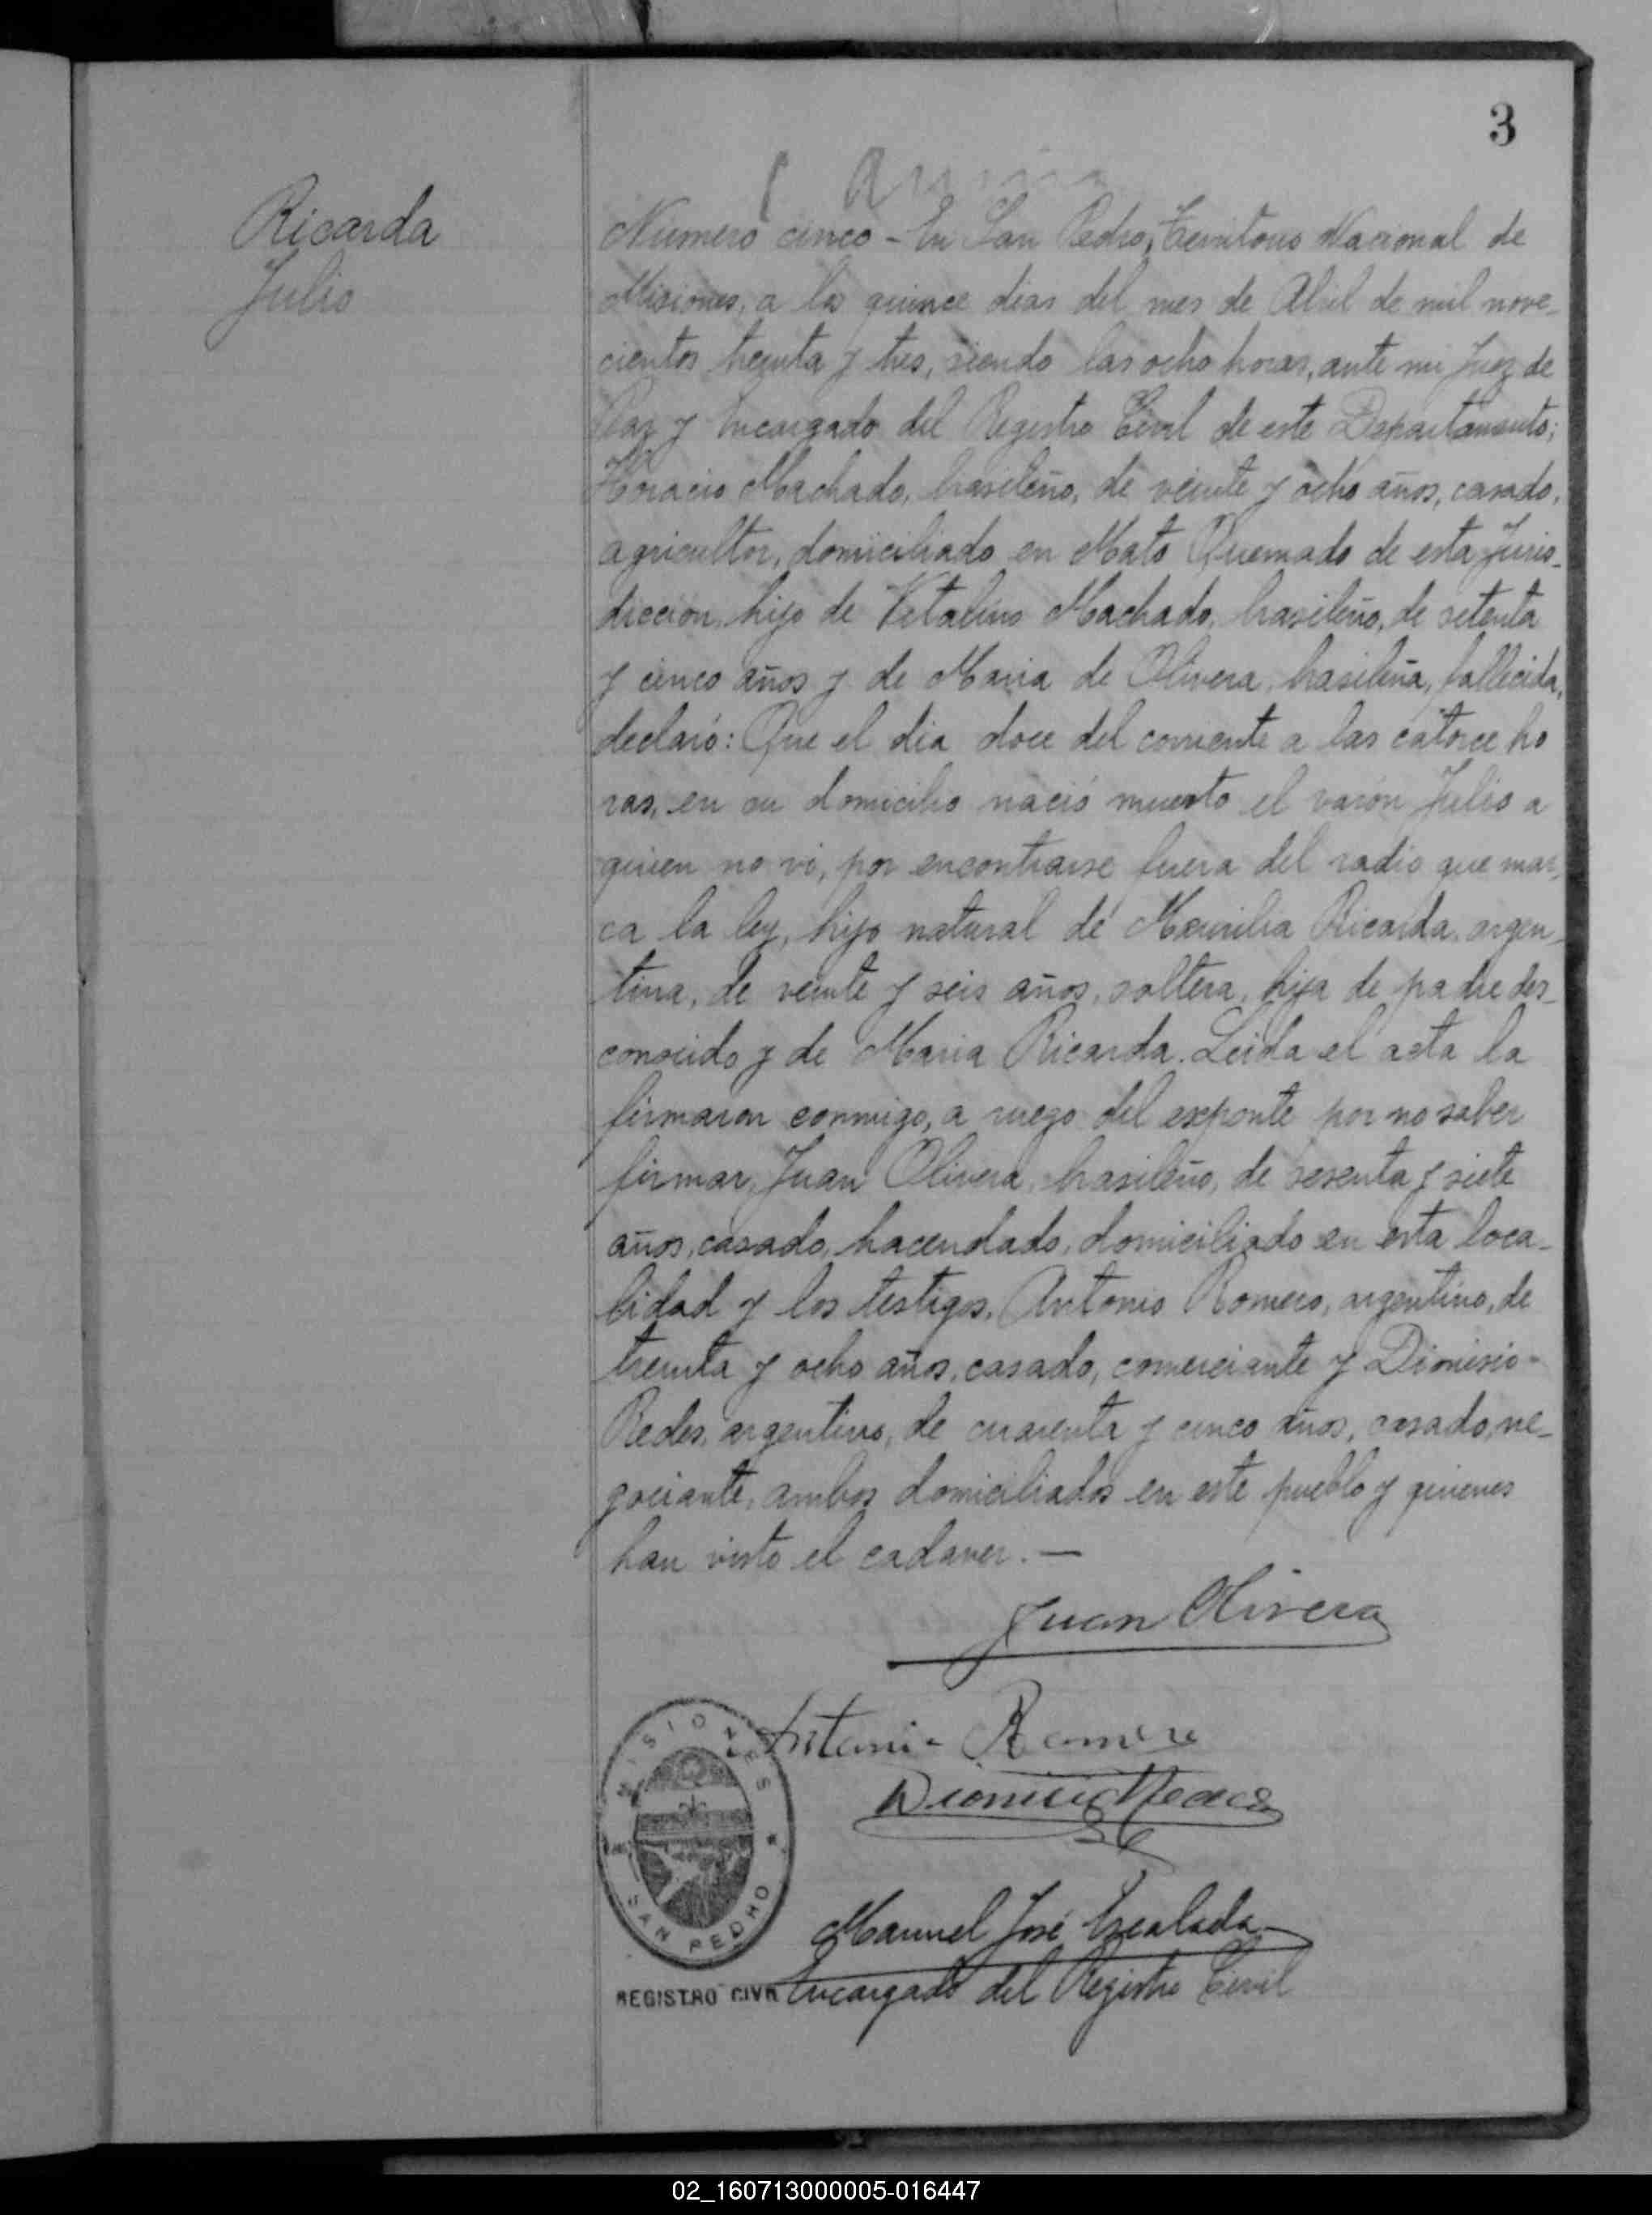 3
Ricarda
Julio
Numero cinco - En San Pedro, Territorio Nacional de
Misiones, a los quince dias del mes de Abril de mil nove-
cientos treinta y tres, siendo las ocho horas, ante mi Juez de
Paz y Encargado del Registro Civil de este Departamento;
Horacio Machado, brasileño, de veinte y ocho años, casado,
agricultor, domiciliado en Mato Quemado de esta Juris-
diccion, hijo de Vitalino Machado, brasileño, de setenta
y cinco años y de Maria de Olivera, brasileña, fallecida,
declaró: Que el dia doce del corriente a las catorce ho
ras, en su domicilio nació muerto el varón Julio a
quien no vi, por encontrarse fuera del radio que mar-
ca la ley, hijo natural de Ricarda, argen-
tina, de veinte y seis años, soltera, hija de padre des-
conocido y de Maria Ricarda. Leida el acta la
firmaron conmigo, a ruego del exponte por no saber
firmar, Juan Olivera, brasileño, de sesenta y siete
años, casado, hacendado, domiciliado en esta loca-
lidad y los testigos, Antonio Romero, argentino, de
treinta y ocho años, casado, comerciante y Dionisio-
Redes, argentino, de cuarenta y cinco años, casado, ne-
gociante, ambos domiciliados en este pueblo y quienes
han visto el cadaver. —
Juan Olivera
Antonio Romero
Dionisio Redes
MISIONES
SAN PEDRO
Manuel José
REGISTRO CIVIL Encargado del Registro Civil
02_160713000005-016447